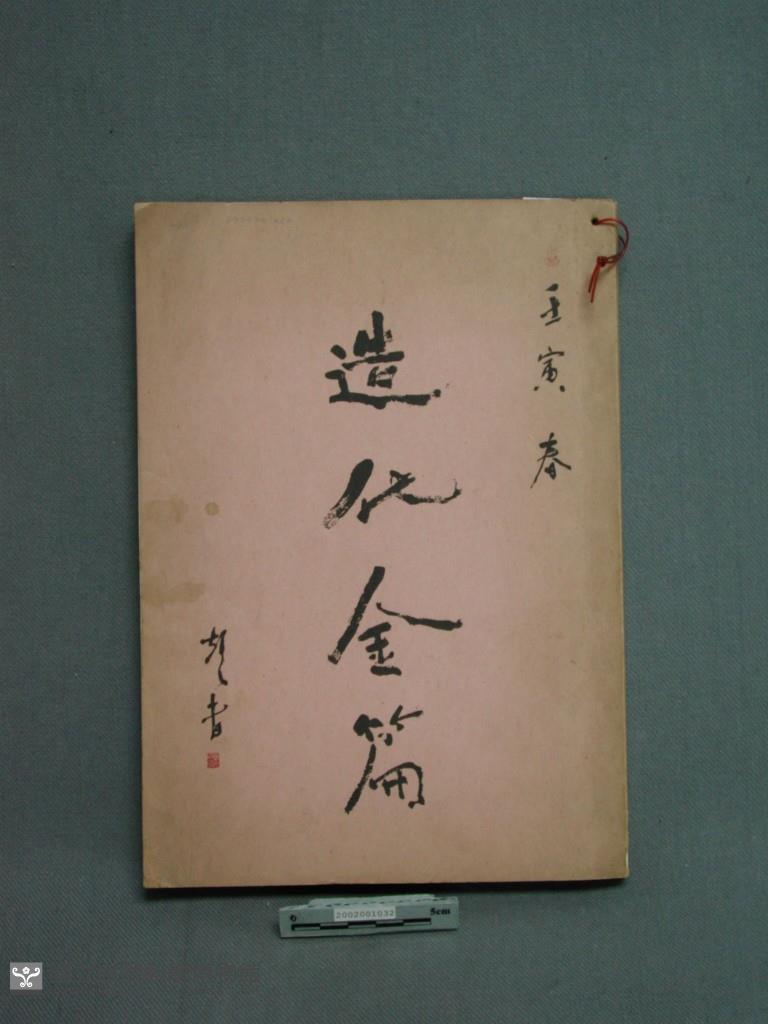 壬寅春
造化金篇
書
2002001032
5cm
0